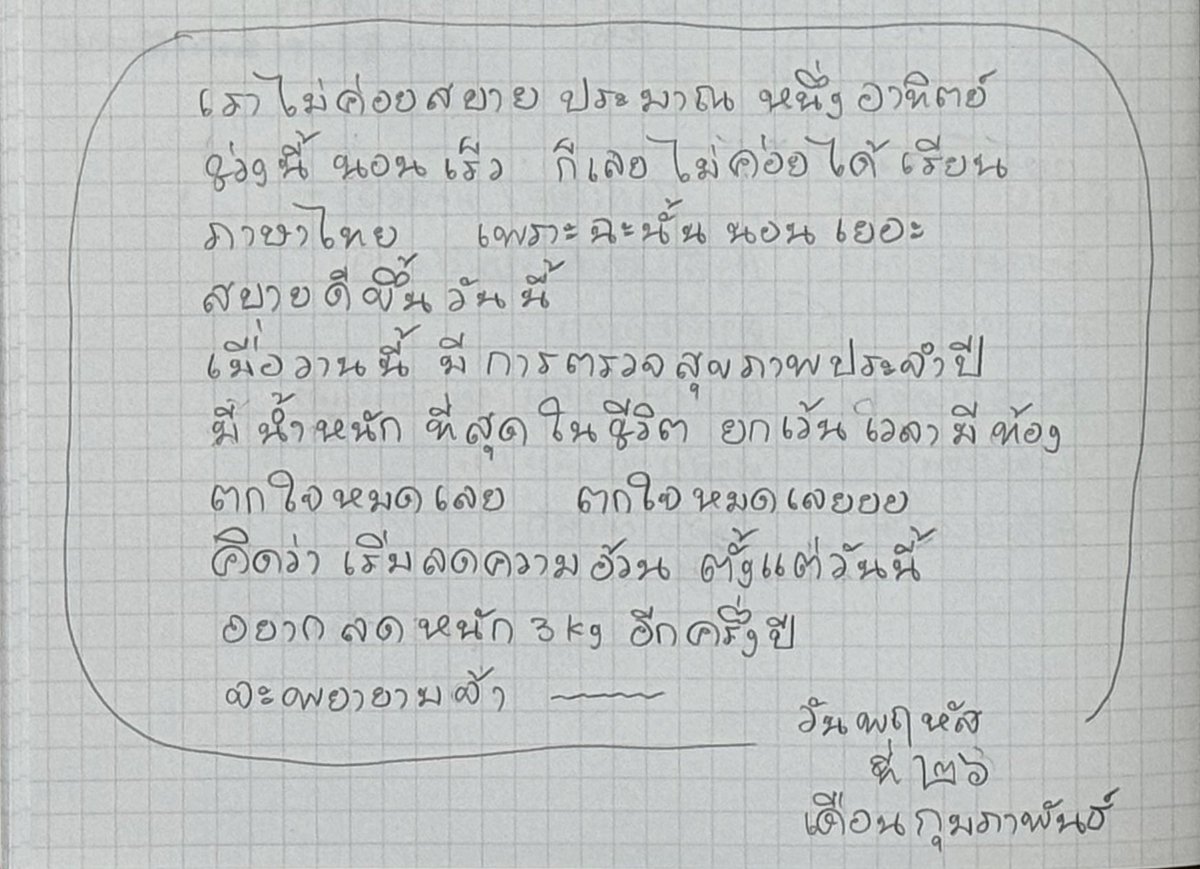 เราไม่ค่อยสบาย ประมาณ หนึ่งอาทิตย์
ช่วงนี้ นอนเร็ว ก็เลยไม่ค่อยได้ เรียน
ภาษาไทย เพราะฉะนั้น นอนเยอะ
สบายดีขึ้น วันนี้
เมื่อวานนี้ มีการตรวจสุขภาพประจำปี
มีน้ำหนัก ที่สุดในชีวิต ยกเว้นเวลามีท้อง
ตกใจหมดเลย ตกใจหมดเลยยย
คิดว่า เริ่มลดความอ้วน ตั้งแต่วันนี้
อยากลดหนัก 3 kg อีกครึ่งปี
จะพยายามจ้า
วันพฤหัส
ที่ ๒๖
เดือนกุมภาพันธ์